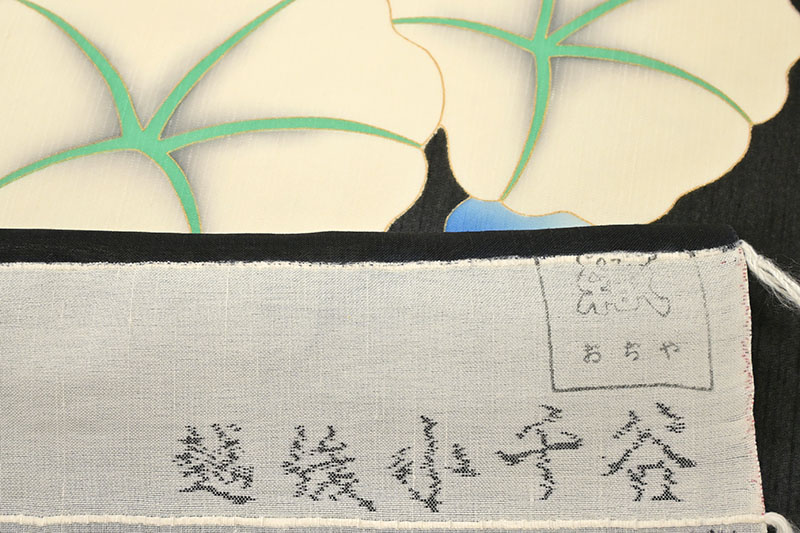 おぢや
越後小千谷